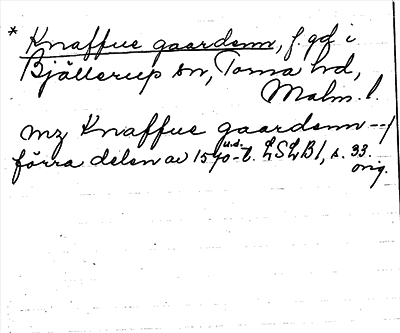 * Knaffue gaardenn, f. gd i
Bjällerup sn, Torna hd,
Malm. l.
mz Knaffue gaardenn --/
förra delen av 1570-t. LSLB1, s. 33.
u.s.
orig.